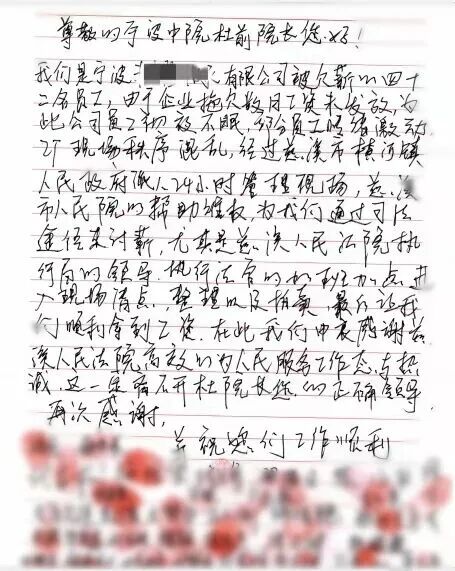 尊敬的宁波中院杜前院长您好!
我们是宁波 有限公司被欠薪的四十
二名员工,由于企业拖欠数月工资未发放,为
此公司员工彻夜不眠,部分员工情绪激动,
工厂现场秩序混乱,经过慈溪市横河镇
人民政府派人24小时管理现场,慈溪
市人民院的帮助维权,为我们通过司法
途径来付薪,尤其是慈溪人民法院执
行局的领导、执行法官的加班加点,进
入现场清点、整理以及拍卖,最后让我
们顺利拿到工资。在此我们中衷感谢慈
溪人民法院高效的为人民服务工作态度与热
诚,这一定离不开杜院长您们正确领导,
再次感谢,
并祝您们工作顺利